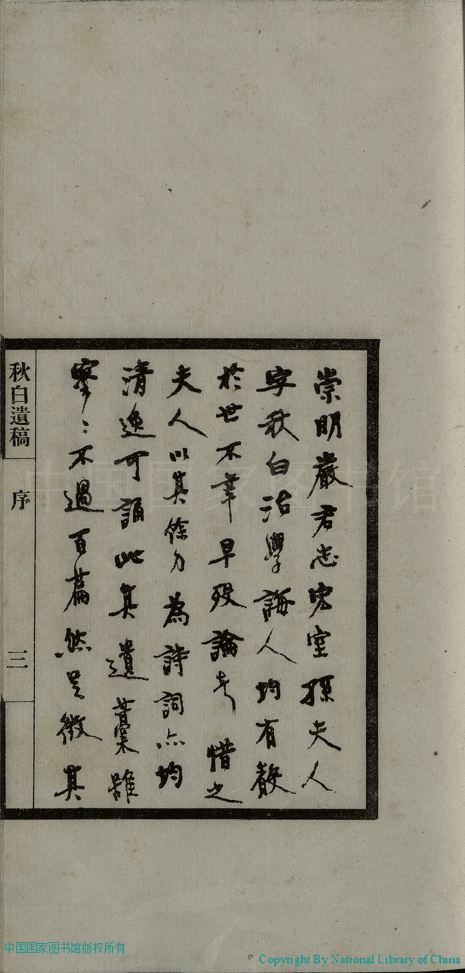 崇明嚴君志宏室孫夫人
字秋白治學誨人均有聲
於世不幸早歿論者惜之
夫人以其餘力為詩詞亦均
清逸可誦此其遺藁雖
寥〻不過百篇然足徵其
秋白遺稿
序
三
中国国家图书馆
中国国家图书馆版权所有
Copyright By National Library of China